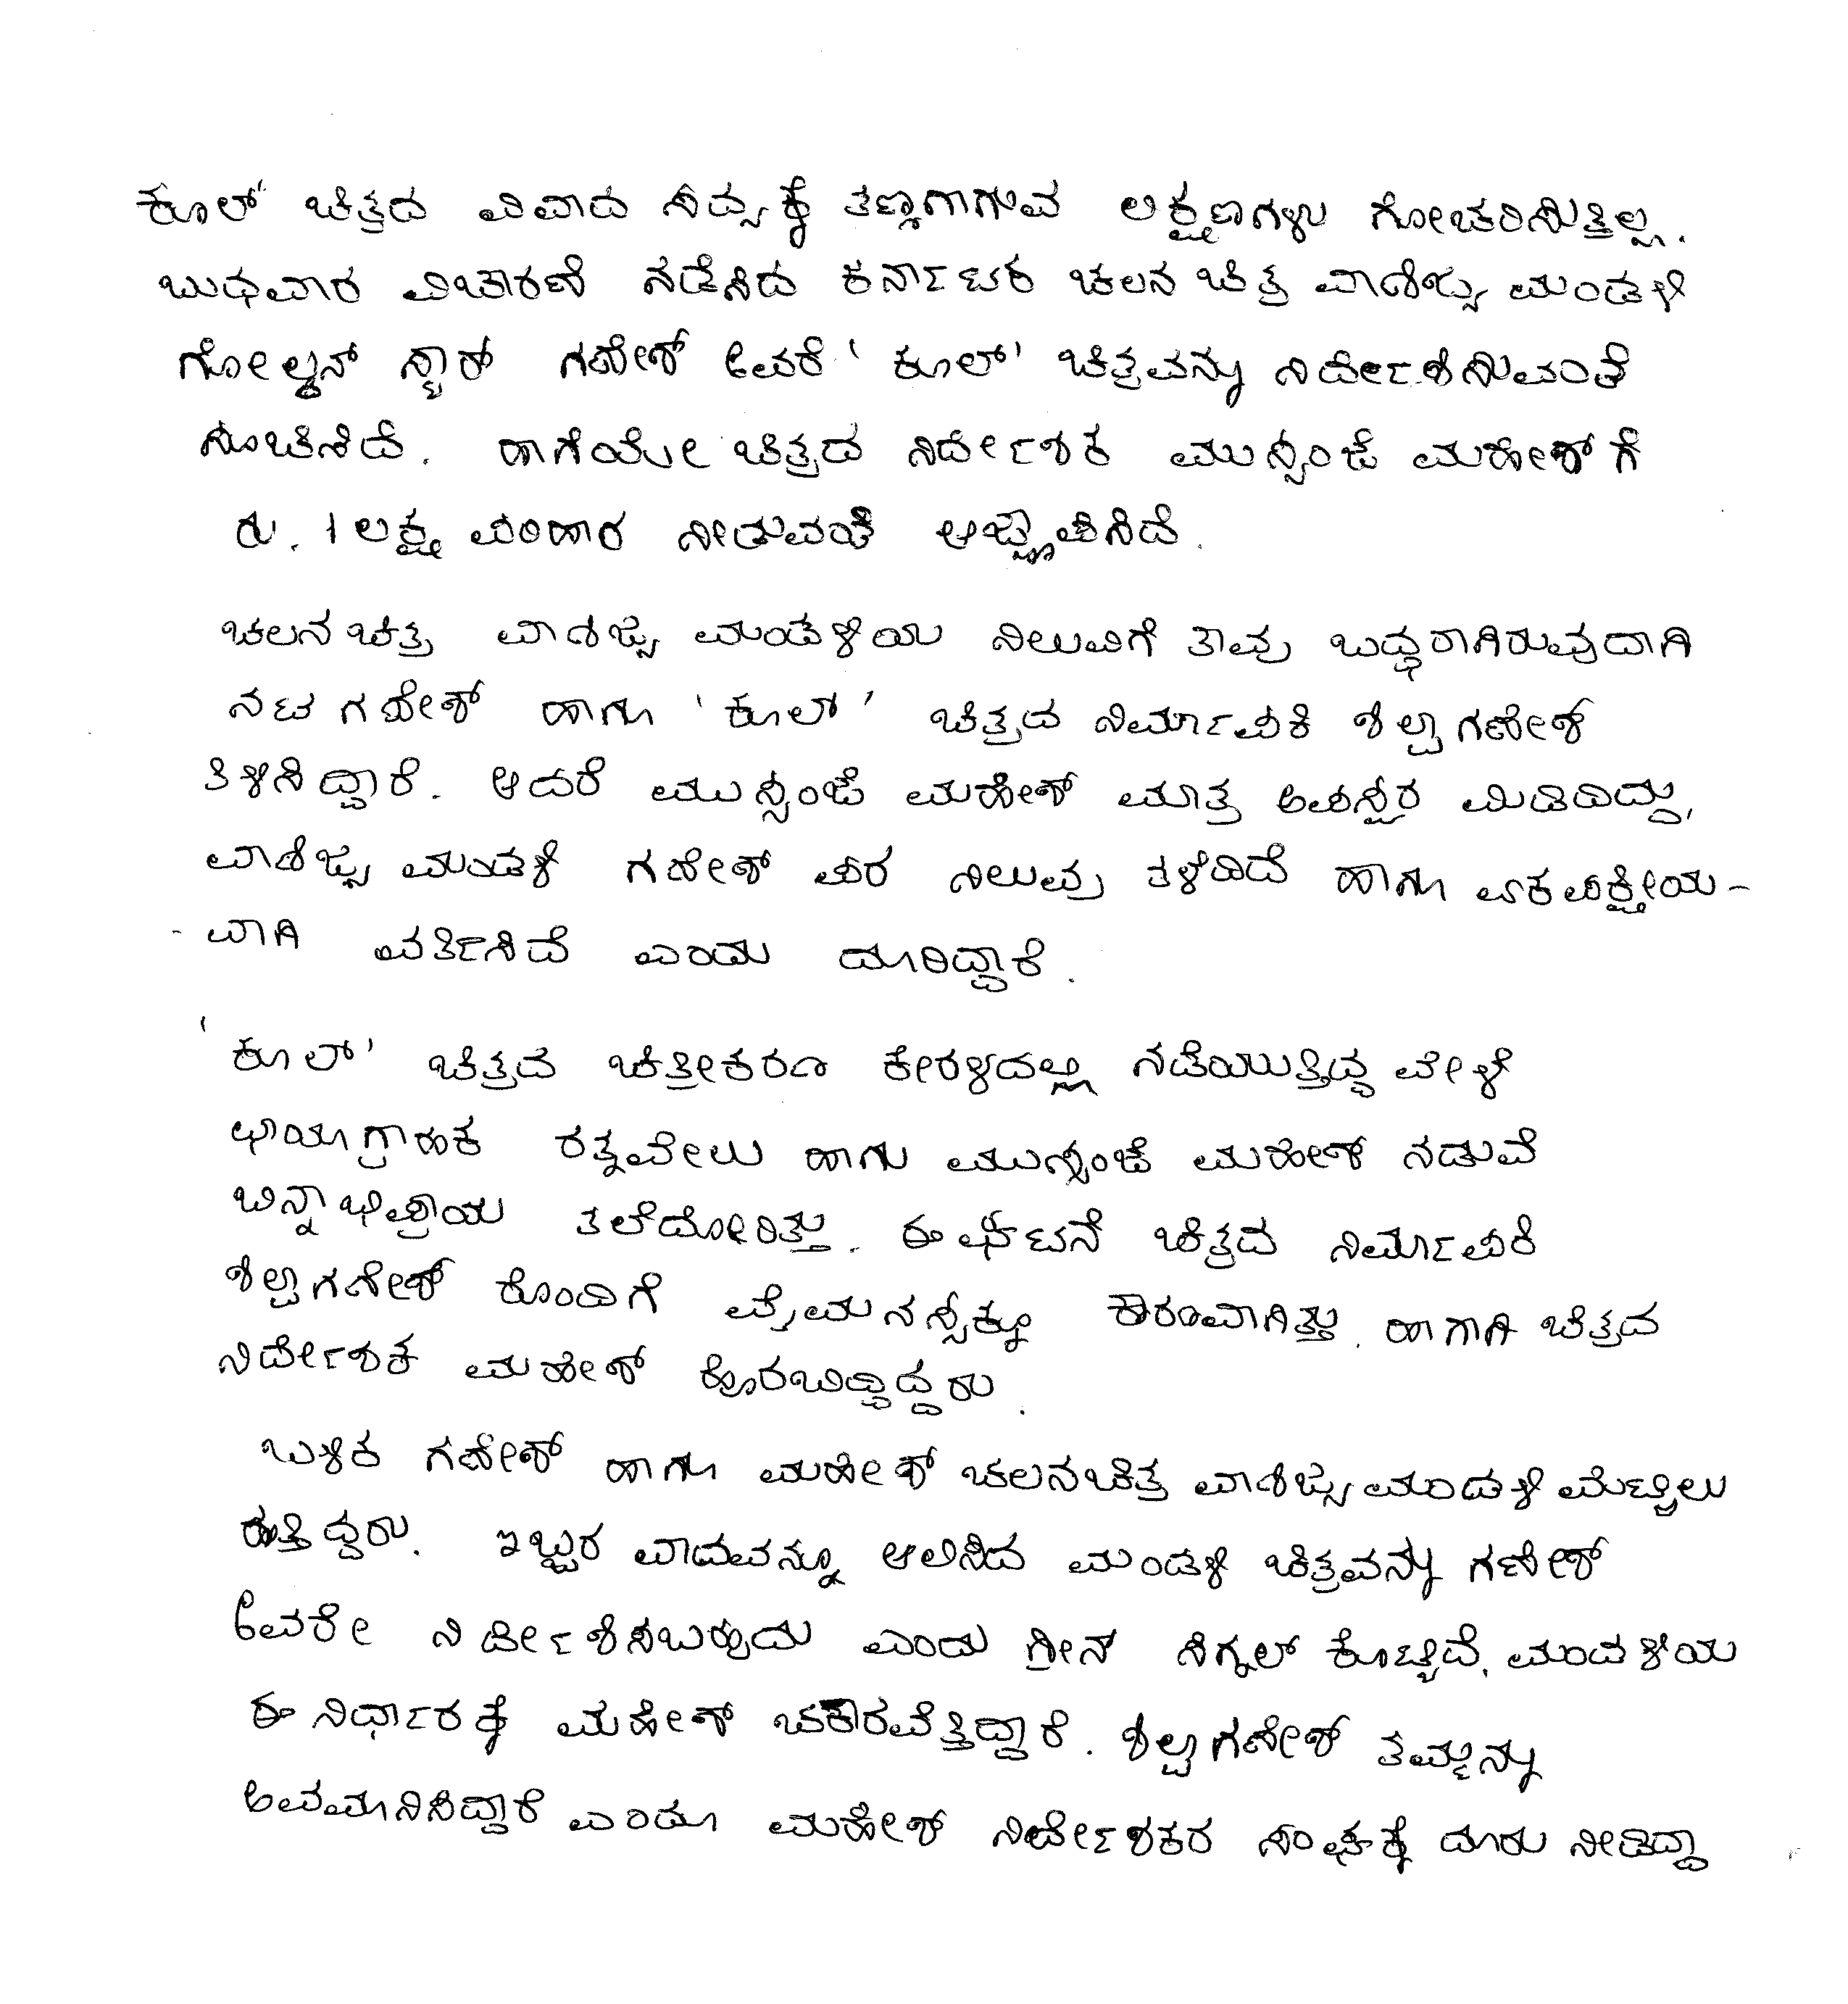 ಕೂಲ್ ಚಿತ್ರದ ವಿವಾದ ಸದ್ಯಕ್ಕೆ ತಣ್ಣಗಾಗುವ ಲಕ್ಷಣಗಳು ಗೋಚರಿಸುತ್ತಿಲ್ಲ.
ಬುಧವಾರ ವಿಚಾರಣೆ ನಡೆಸಿದ ಕರ್ನಾಟಕ ಚಲನ ಚಿತ್ರ ವಾಣಿಜ್ಯ ಮಂಡಳಿ
ಗೋಲ್ಡನ್ ಸ್ಟಾರ್ ಗಣೇಶ್ ಅವರೆ 'ಕೂಲ್' ಚಿತ್ರವನ್ನು ನಿರ್ದೇಶಿಸುವಂತೆ
ಸೂಚಿಸಿದೆ. ಹಾಗೆಯೇ ಚಿತ್ರದ ನಿರ್ದೇಶಕ ಮುಸ್ಸಂಜೆ ಮಹೇಶ್ ಗೆ
ರು. 1 ಲಕ್ಷ ಪರಿಹಾರ ನೀಡುವಂತೆ ಆಜ್ಞಾಪಿಸಿದೆ.
ಚಲನಚಿತ್ರ ವಾಣಿಜ್ಯ ಮಂಡಳಿಯ ನಿಲುವಿಗೆ ತಾವು ಬದ್ಧರಾಗಿರುವುದಾಗಿ
ನಟ ಗಣೇಶ್ ಹಾಗು 'ಕೂಲ್' ಚಿತ್ರದ ನಿರ್ಮಾಪಕಿ ಶಿಲ್ಪಾ ಗಣೇಶ್
ತಿಳಿಸಿದ್ದಾರೆ. ಆದರೆ ಮುಸ್ಸಂಜೆ ಮಹೇಶ್ ಮಾತ್ರ ಅಪಸ್ವರ ಮಿಡಿದಿದ್ದು,
ವಾಣಿಜ್ಯ ಮಂಡಳಿ ಗಣೇಶ್ ಪರ ನಿಲುವು ತಳೆದಿದೆ ಹಾಗು ಏಕಪಕ್ಷೀಯ-
-ವಾಗಿ ವರ್ತಿಸಿದೆ ಎಂದು ದೂರಿದ್ದಾರೆ.
'ಕೂಲ್' ಚಿತ್ರದ ಚಿತ್ರೀಕರಣ ಕೇರಳದಲ್ಲಿ ನಡೆಯುತ್ತಿದ್ದ ವೇಳೆ
ಛಾಯಾಗ್ರಾಹಕ ರತ್ನವೇಲು ಹಾಗು ಮುಸ್ಸಂಜೆ ಮಹೇಶ್ ನಡುವೆ
ಬಿನ್ನಾಭಿಪ್ರಾಯ ತಲೆದೋರಿತ್ತು. ಈ ಘಟನೆ ಚಿತ್ರದ ನಿರ್ಮಾಪಕಿ
ಶಿಲ್ಪಾ ಗಣೇಶ್ ರೊಂದಿಗೆ ವೈಮನಸ್ಸಿಕ್ಕೂ ಕಾರಣವಾಗಿತ್ತು. ಹಾಗಾಗಿ ಚಿತ್ರದ
ನಿರ್ದೇಶಕ ಮಹೇಶ್ ಹೊರಬಿದ್ದಿದ್ದರು.
ಬಳಿಕ ಗಣೇಶ್ ಹಾಗು ಮಹೇಶ್ ಚಲನಚಿತ್ರ ವಾಣಿಜ್ಯ ಮಂಡಳಿ ಮೆಟ್ಟಿಲು
ಹತ್ತಿದ್ದರು. ಇಬ್ಬರ ವಾದವನ್ನೂ ಆಲಿಸಿದ ಮಂಡಳಿ ಚಿತ್ರವನ್ನು ಗಣೇಶ್
ಅವರೇ ನಿರ್ದೇಶಿಸಬಹುದು ಎಂದು ಗ್ರೀನ್ ಸಿಗ್ನಲ್ ಕೊಟ್ಟಿದೆ. ಮಂಡಳಿಯ
ಈ ನಿರ್ಧಾರಕ್ಕೆ ಮಹೇಶ್ ಚಕಾರವೆತ್ತಿದ್ದಾರೆ. ಶಿಲ್ಪಾ ಗಣೇಶ್ ತಮ್ಮನ್ನು
ಅವಮಾನಿಸಿದ್ದಾರೆ ಎಂದೂ ಮಹೇಶ್ ನಿರ್ದೇಶಕರ ಸಂಘಕ್ಕೆ ದೂರು ನೀಡಿದ್ದಾ